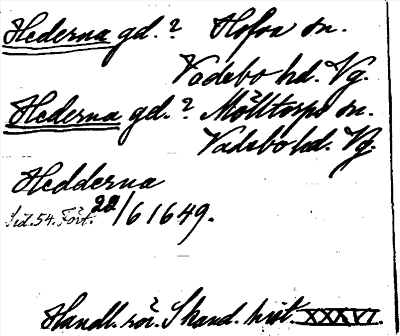 Hederna gd.? Hofva sn.
Vadsbo hd. Vg.
Hederna gd.? Mölltorps sn.
Vadsbo hd. Vg.
Hedderna
Sid. 54. Fört. 20/6 1649.
Handl. rör. Skand. hist. XXXVI.